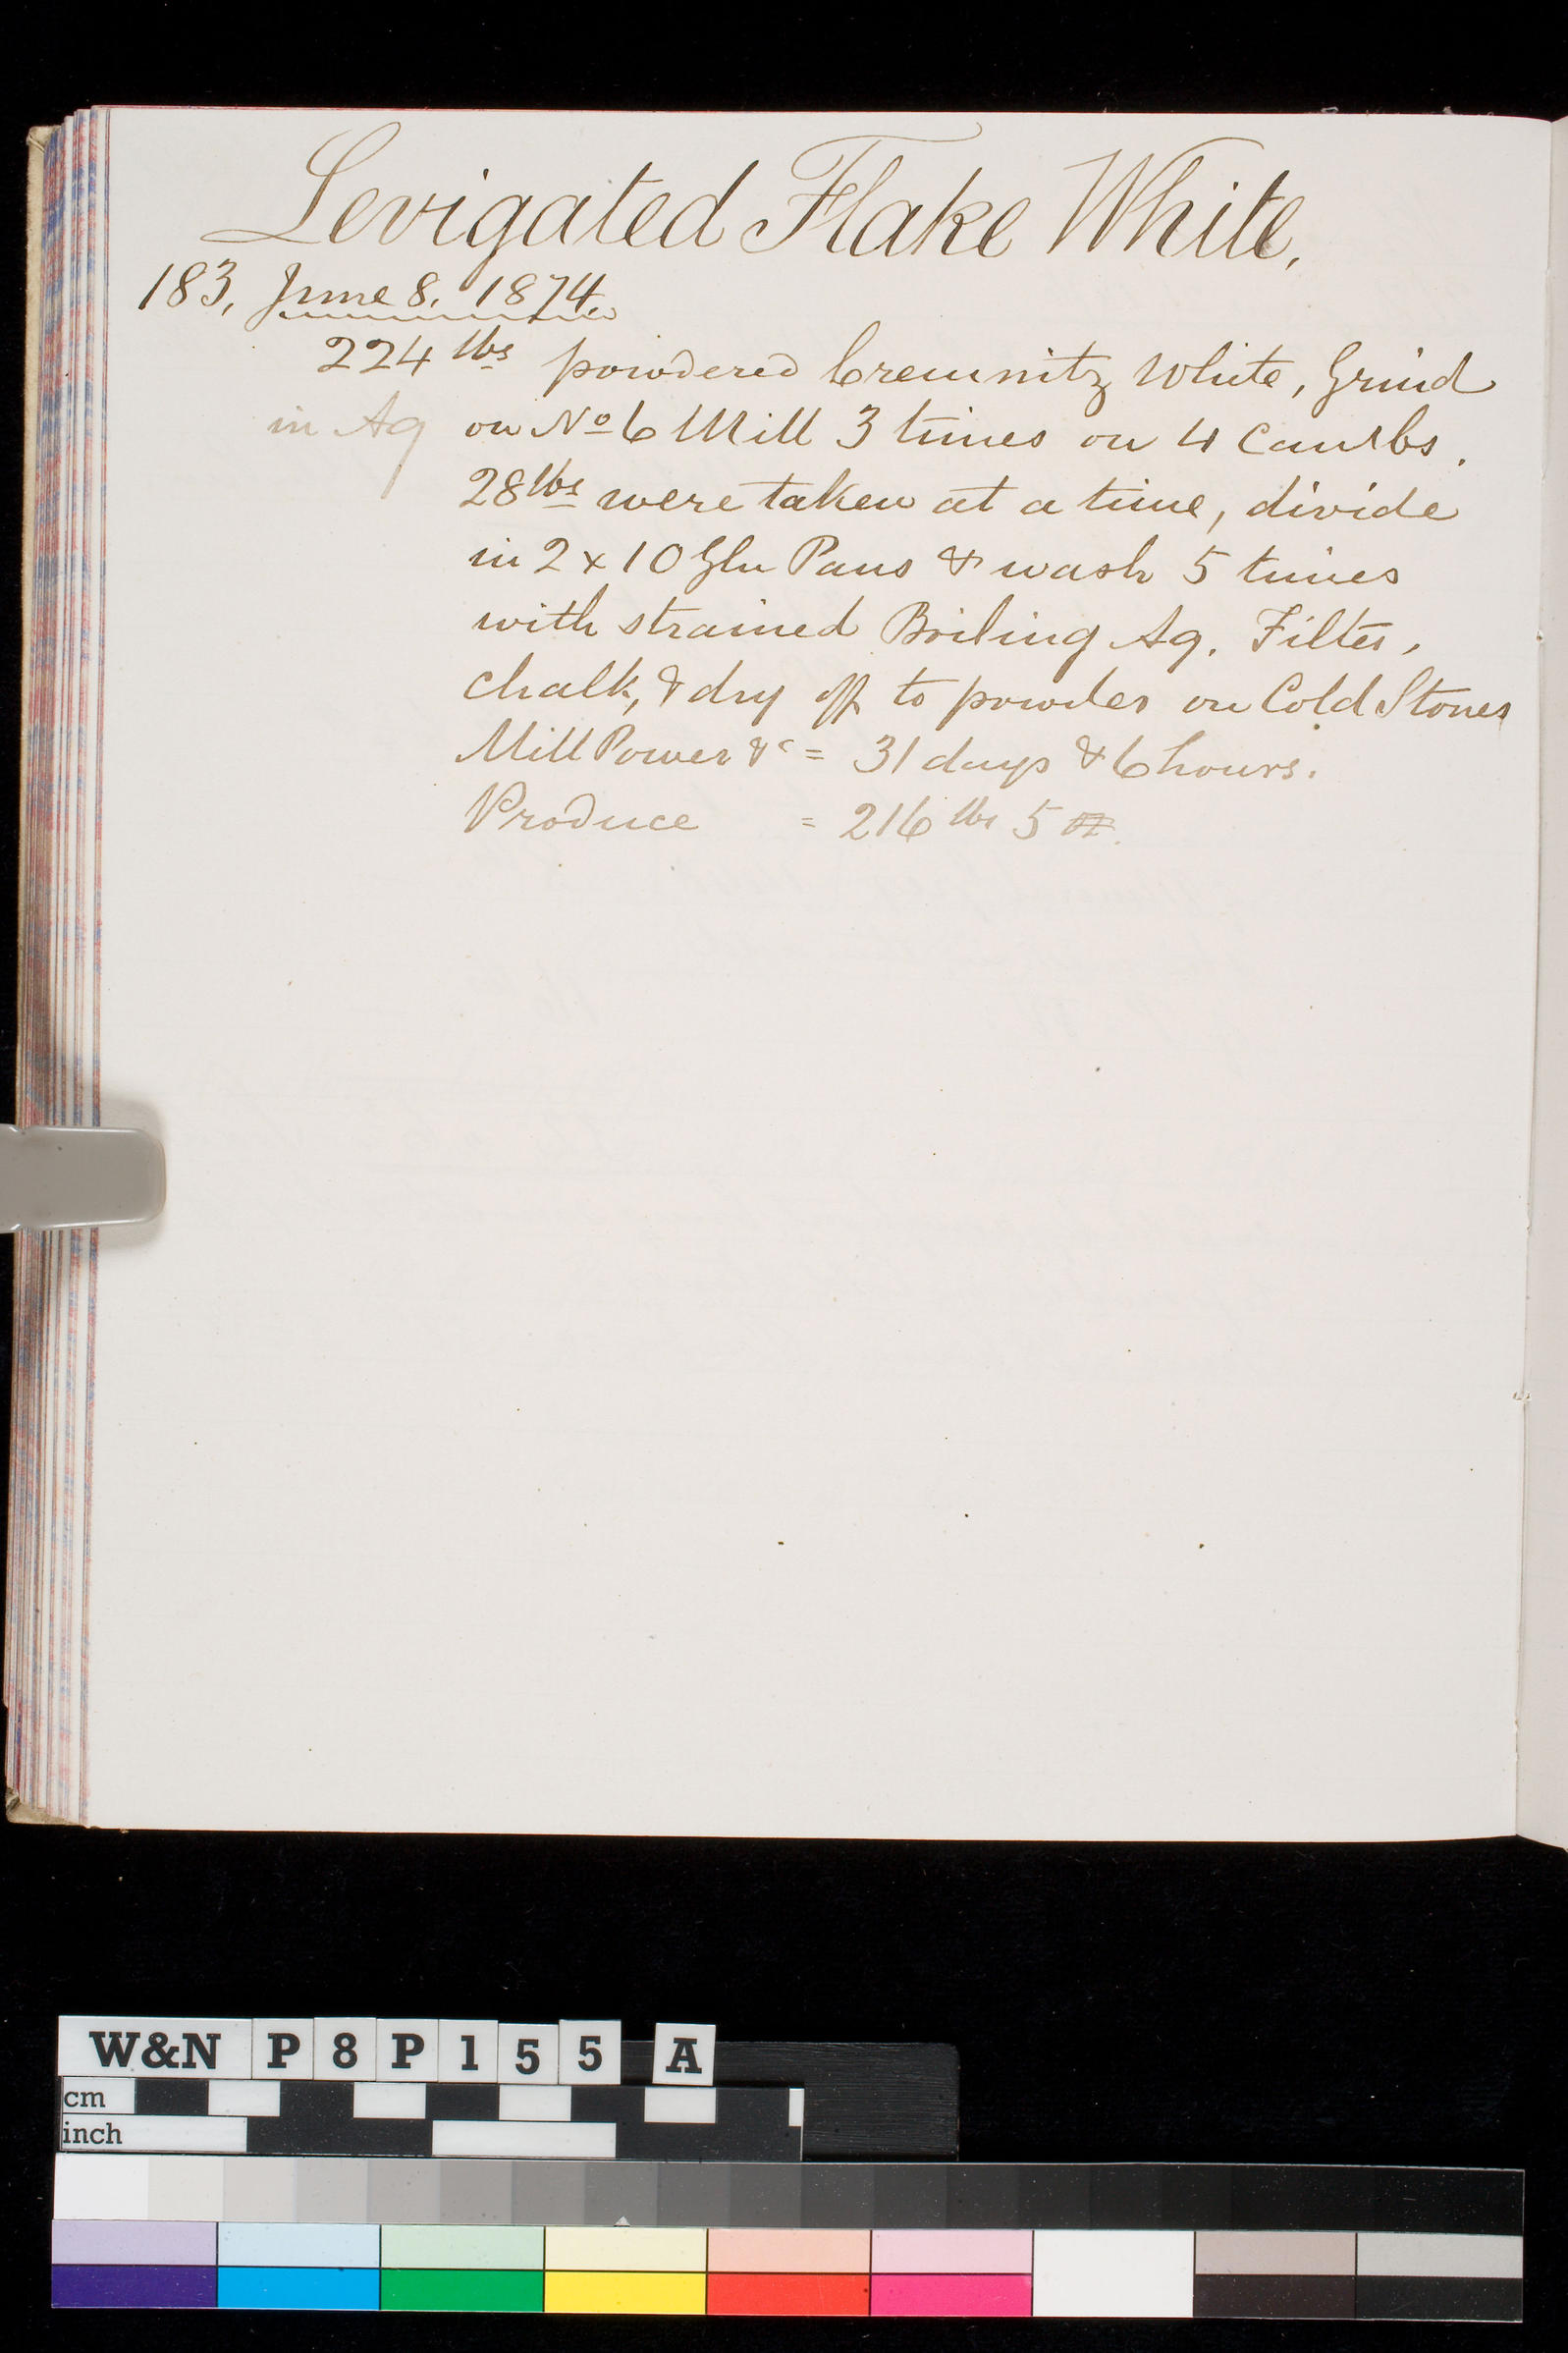 Levigated Flake White,
183, June 8. 1874.
224 lbs powdered Cremnitz White, Grind
in Aq on No 6 Mill 3 times on 4 Cambs.
28 lbs were taken at a time, divide
in 2 x 10 Gln Pans & wash 5 times
with strained Boiling Aq. Filter,
chalk, & dry off to powder on Cold Stones
Mill Power &c = 31 days & 6 hours.
Produce = 216 lbs 5 oz.
W&N P8P155 A
cm
inch